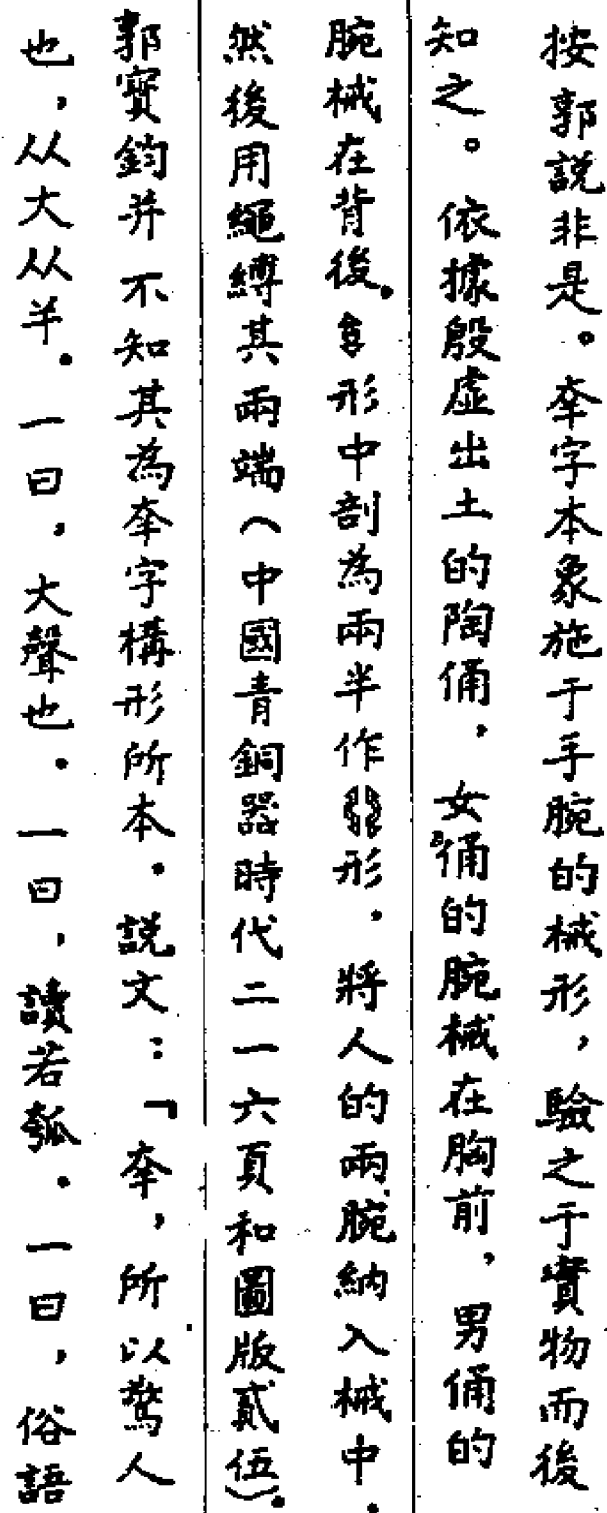 按郭說非是。㚔字本象施于手腕的械形，驗之于實物而後
知之。依據殷虛出土的陶俑，女俑的腕械在胸前，男俑的
腕械在背後。形中剖為兩半作形，將人的兩腕納入械中，
然後用繩縛其兩端（中國青銅器時代二一六頁和圖版貳伍）。
郭寶鈞并不知其為㚔字構形所本。說文：「㚔，所以驚人
也，从大从𢆉。一曰，大聲也。一曰，讀若瓠。一曰，俗語